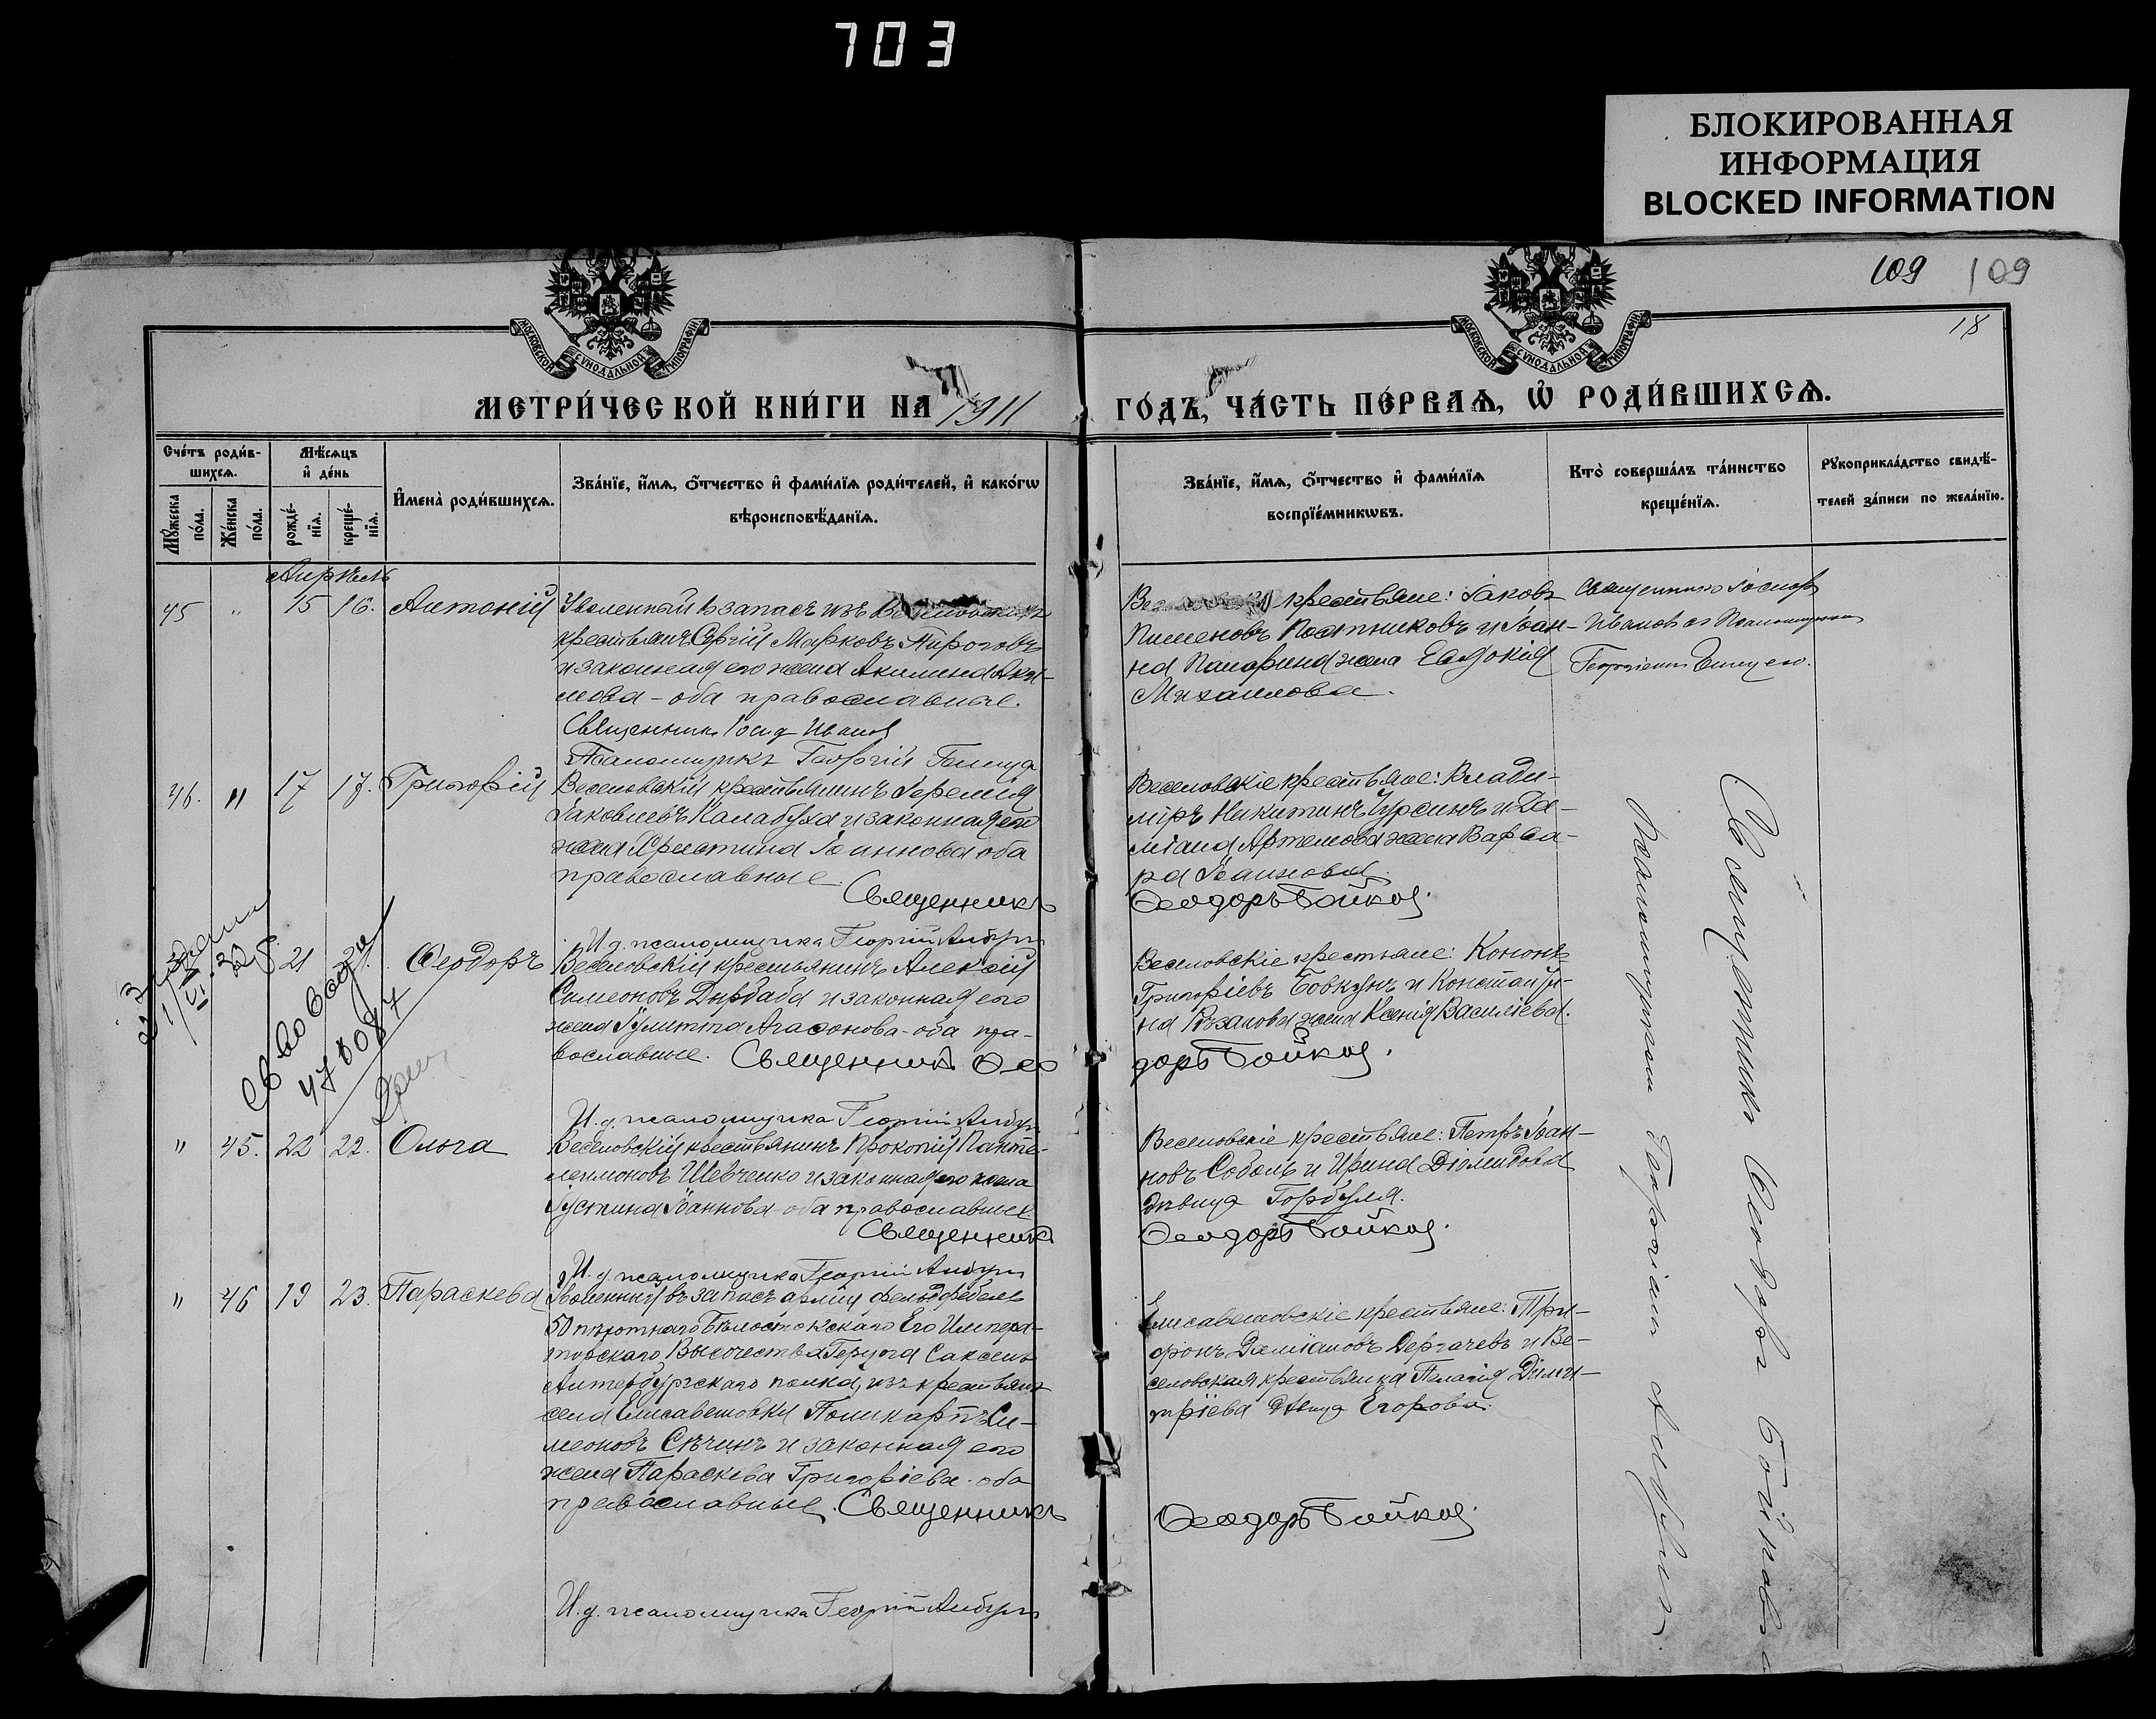 703
БЛОКИРОВАННАЯ
ИНФОРМАЦИЯ
BLOCKED INFORMATION
109 109
18
МОСКОВСКОЙ СѴНОДАЛЬНОЙ ТИПОГРАФІИ
МОСКОВСКОЙ СѴНОДАЛЬНОЙ ТИПОГРАФІИ
МЕТРИ́ЧЕСКОЙ КНИ́ГИ НА 1911 ГО́ДЪ, ЧА́СТЬ ПЕ́РВАѦ, Ѡ҆ РОДИ́ВШИХСѦ.
Сче́тъ роди́в-
шихсѧ.
Мꙋ́жеска по́ла.
Же́нска по́ла.
Мѣ́сѧцъ
и҆ де́нь
рожде́-
нїѧ.
креще́-
нїѧ.
И҆мена̀ роди́вшихсѧ.
Зва́нїе, и҆́мѧ, ѻ҆́тчество и҆ фами́лїѧ роди́телей, и҆ како́гѡ
вѣроисповѣ́данїѧ.
Зва́нїе, и҆́мѧ, ѻ҆́тчество и҆ фами́лїѧ
воспрїе́мникѡвъ.
Кто̀ соверша́лъ та́инство
креще́нїѧ.
Рꙋкоприкла́дство свидѣ́-
телей за́писи по жела́нїю.
Апрѣль
45 " 15 16. Антоній
Уволенный в запасъ изъ
крестьянъ Сергій Марковъ Пироговъ
и законная его жена Акилина Аки-
мова - оба православные.
Священникъ Іосиф Иванов
Псаломщикъ Георгій
крестьяне: Іаковъ
Пименовъ Постниковъ и Іоан-
на Панарина жена Евдокія
Михаилова.
Священникъ Іосифъ
Ивановъ съ Псаломщикомъ
Георгіемъ
46. " 17 17. Григорій
Веселовскій крестьянинъ Іеремія
Іаковлевъ Калабуха и законная его
жена Христина Іоаннова оба
православные
Священникъ
Веселовскіе крестьяне: Влади-
міръ Никитинъ Чурсинъ и Да-
міана Артемова жена Варва-
ра Іоаннова.
Ѳеодоръ Бойков.
И. д. псаломщика Георгій
21 Ѳеодоръ
Веселовскій крестьянинъ Алексій
Симеоновъ Дырбаба и законная его
жена Іулитта Агаѳонова - оба пра-
вославные. Священникъ Ѳео
Веселовскіе крестьяне: Кононъ
Григоріевъ Бовкунъ и Константи-
на Рѣзанова жена Ксенія Василіева.
доръ Бойков.
478087
И. д. псаломщика Георгій
" 45. 22 22. Ольга
Веселовскій крестьянинъ Прокопій Панте-
леимоновъ Шевченко и законная его жена
Іустина Іоаннова - оба православные.
Священникъ
Веселовскіе крестьяне: Петръ Іоан-
новъ Соболь и Ирина Діомидова
дѣвица Горбуля.
Ѳеодоръ Бойков.
И. д. псаломщика Георгій
" 46 19 23. Параскева
Уволенный въ запасъ арміи фельдфебель
50 пѣхотнаго Бѣлостокскаго Его Импера-
торскаго Высочества Герцога Саксенъ
Альтенбургскаго полка, изъ крестьянъ
села Елисаветовки Поликарпъ Си-
меоновъ Сѣчинъ и законная его
жена Параскева Григоріева - оба
православные. Священникъ
Елисаветовскіе крестьяне: Три-
фонъ Даміановъ Дергачевъ и Ве-
селовская крестьянка Пелагія Дими-
тріева дѣвица Егорова.
Ѳеодоръ Бойков.
И. д. псаломщика Георгій
Священникъ Ѳеодоръ Бойковъ
Псаломщикомъ Георгіемъ